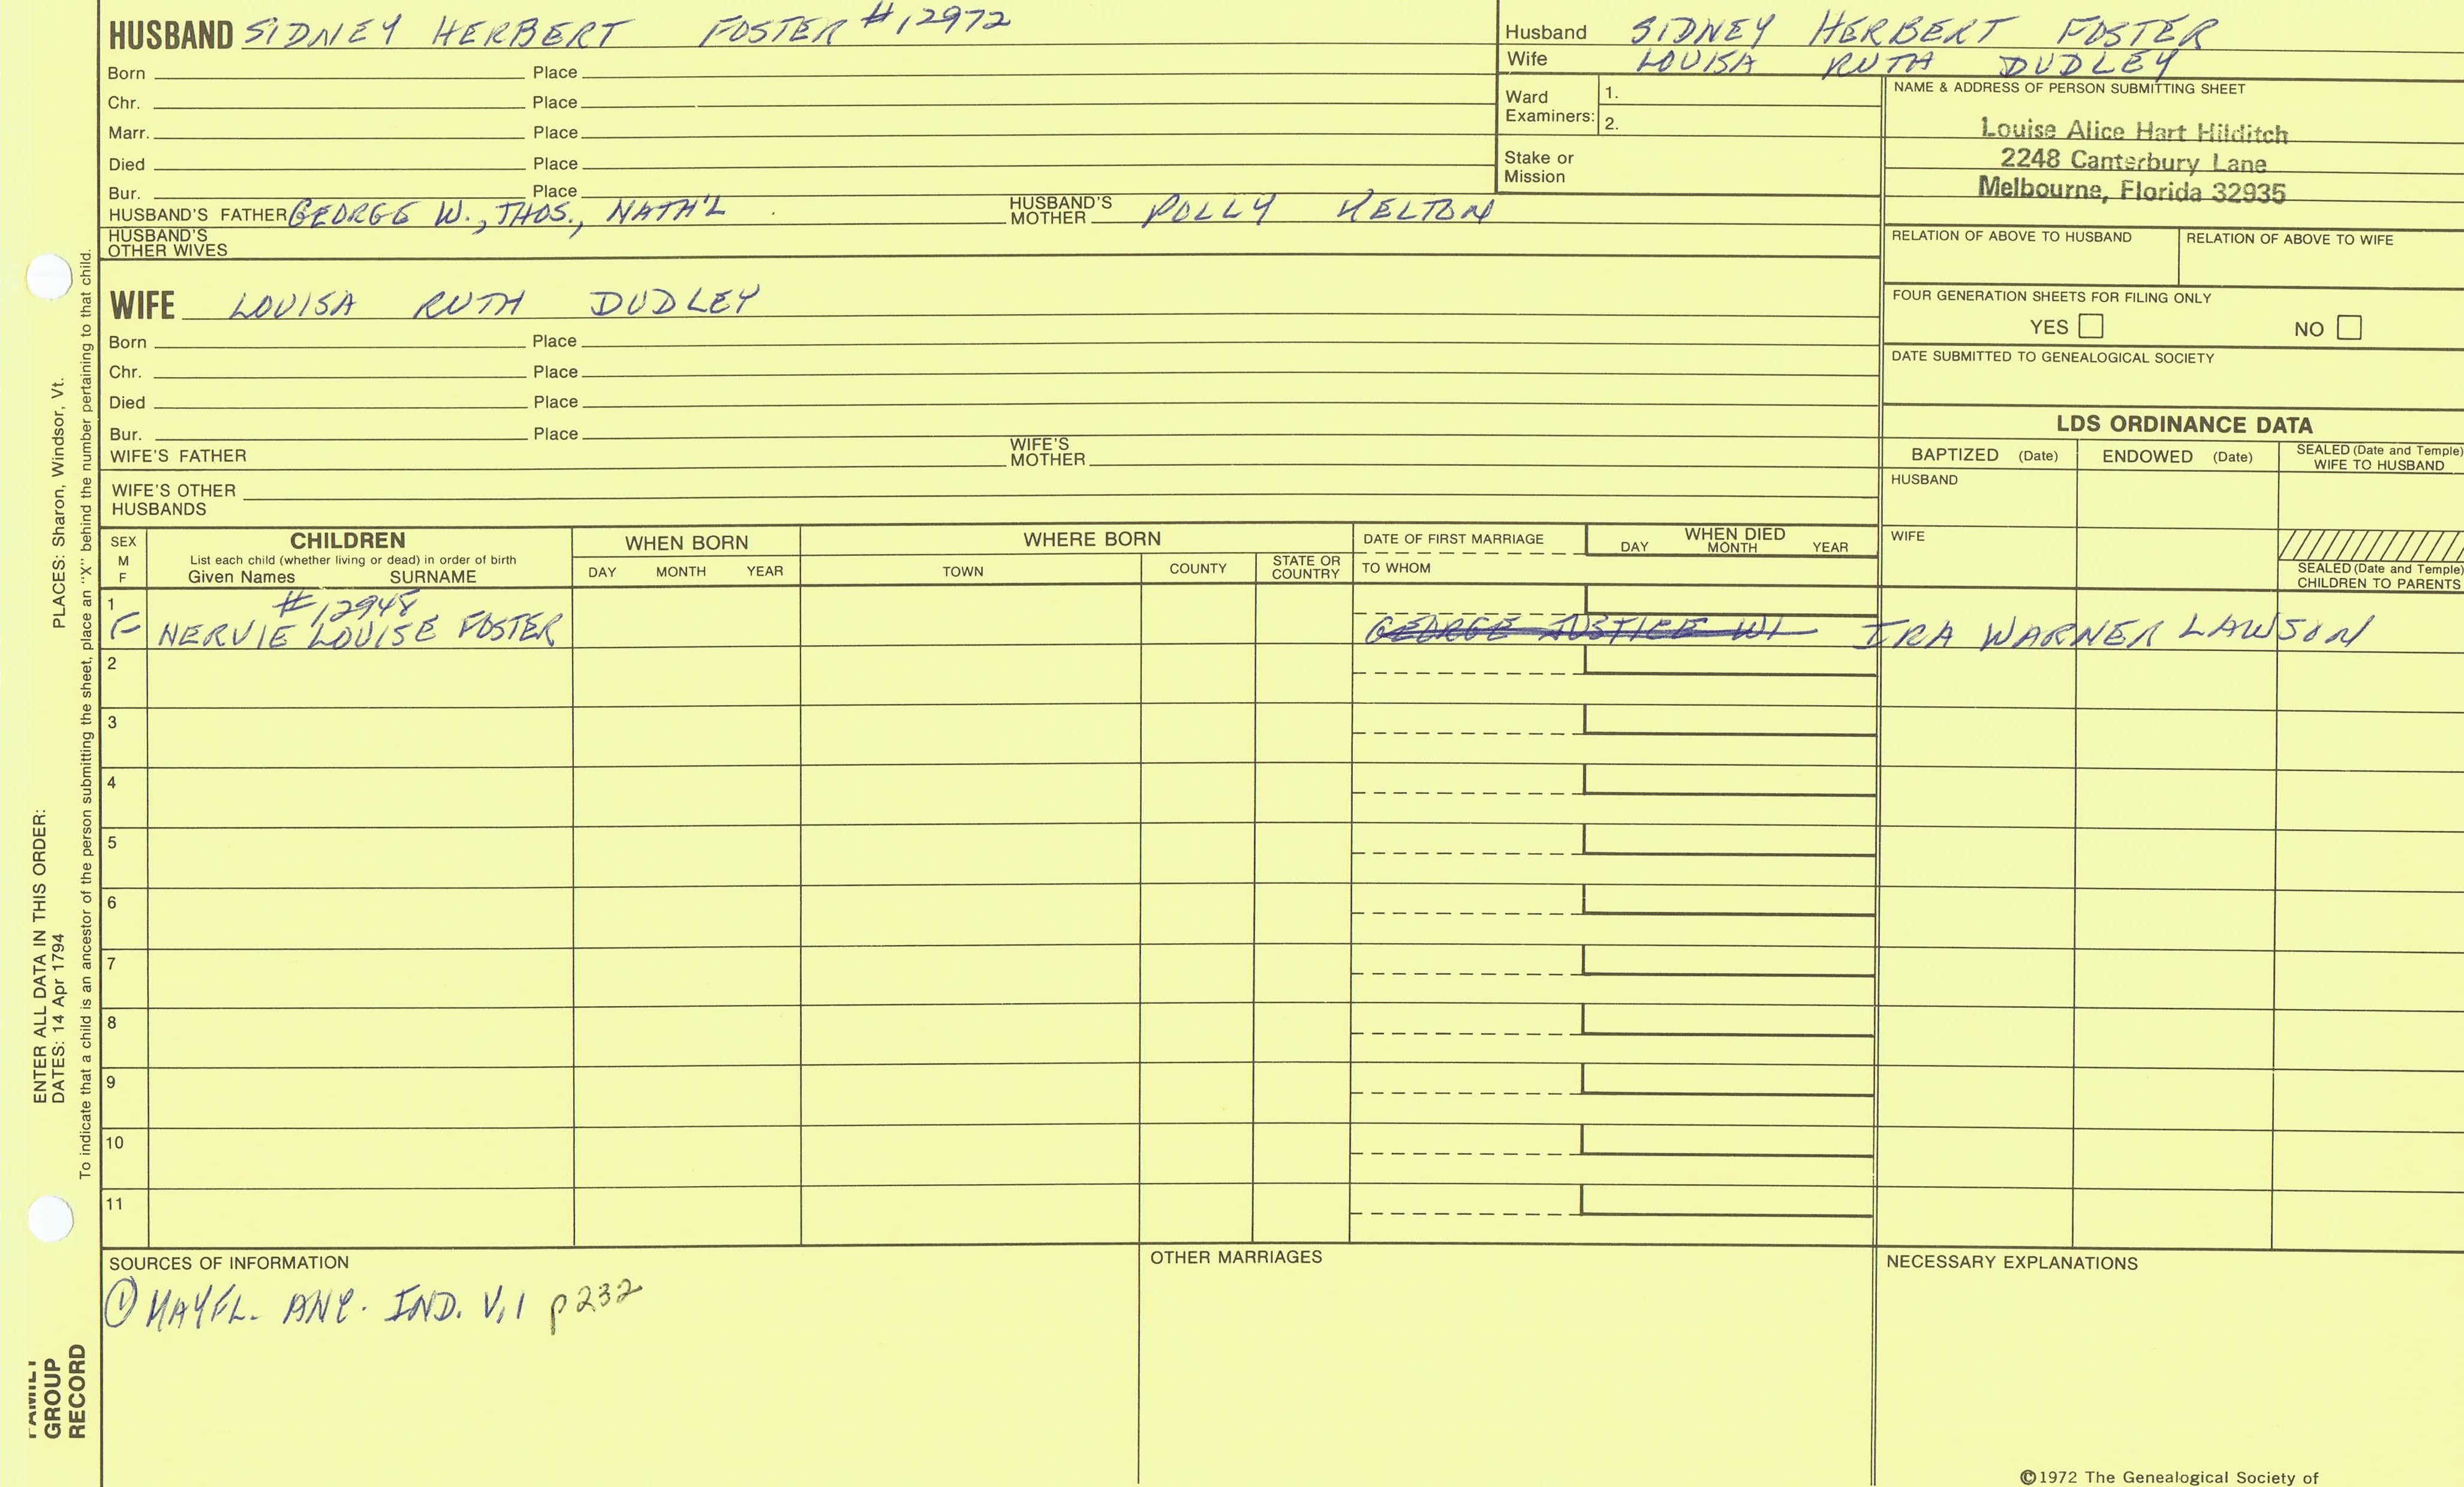 HUSBAND SIDNEY HERBERT FOSTER #12972
Born Place
Chr. Place
Marr. Place
Died Place
Bur. Place
HUSBAND'S FATHER GEORGE W., THOS., NATH'L HUSBAND'S MOTHER POLLY KELTON
HUSBAND'S OTHER WIVES
Husband SIDNEY HERBERT FOSTER
Wife LOUISA RUTH DUDLEY
Ward Examiners: 1.
2.
Stake or Mission
NAME & ADDRESS OF PERSON SUBMITTING SHEET
Louise Alice Hart Hilditch
2248 Canterbury Lane
Melbourne, Florida 32935
RELATION OF ABOVE TO HUSBAND RELATION OF ABOVE TO WIFE
FOUR GENERATION SHEETS FOR FILING ONLY
YES NO
DATE SUBMITTED TO GENEALOGICAL SOCIETY
WIFE LOUISA RUTH DUDLEY
Born Place
Chr. Place
Died Place
Bur. Place
WIFE'S FATHER WIFE'S MOTHER
WIFE'S OTHER HUSBANDS
LDS ORDINANCE DATA
BAPTIZED (Date) ENDOWED (Date) SEALED (Date and Temple) WIFE TO HUSBAND
HUSBAND
WIFE
SEALED (Date and Temple) CHILDREN TO PARENTS
SEX M F
CHILDREN
List each child (whether living or dead) in order of birth
Given Names SURNAME
WHEN BORN
DAY MONTH YEAR
WHERE BORN
TOWN COUNTY STATE OR COUNTRY
DATE OF FIRST MARRIAGE
TO WHOM
WHEN DIED
DAY MONTH YEAR
1 #12948
F NERVIE LOUISE FOSTER GEORGE JUSTICE WI IRA WARNER LAWSON
2
3
4
5
6
7
8
9
10
11
SOURCES OF INFORMATION
① MAYFL. ANC. IND. V.1 p232
OTHER MARRIAGES
NECESSARY EXPLANATIONS
©1972 The Genealogical Society of
ENTER ALL DATA IN THIS ORDER:
DATES: 14 Apr 1794 PLACES: Sharon, Windsor, Vt.
To indicate that a child is an ancestor of the person submitting the sheet, place an "X" behind the number pertaining to that child.
FAMILY
GROUP
RECORD